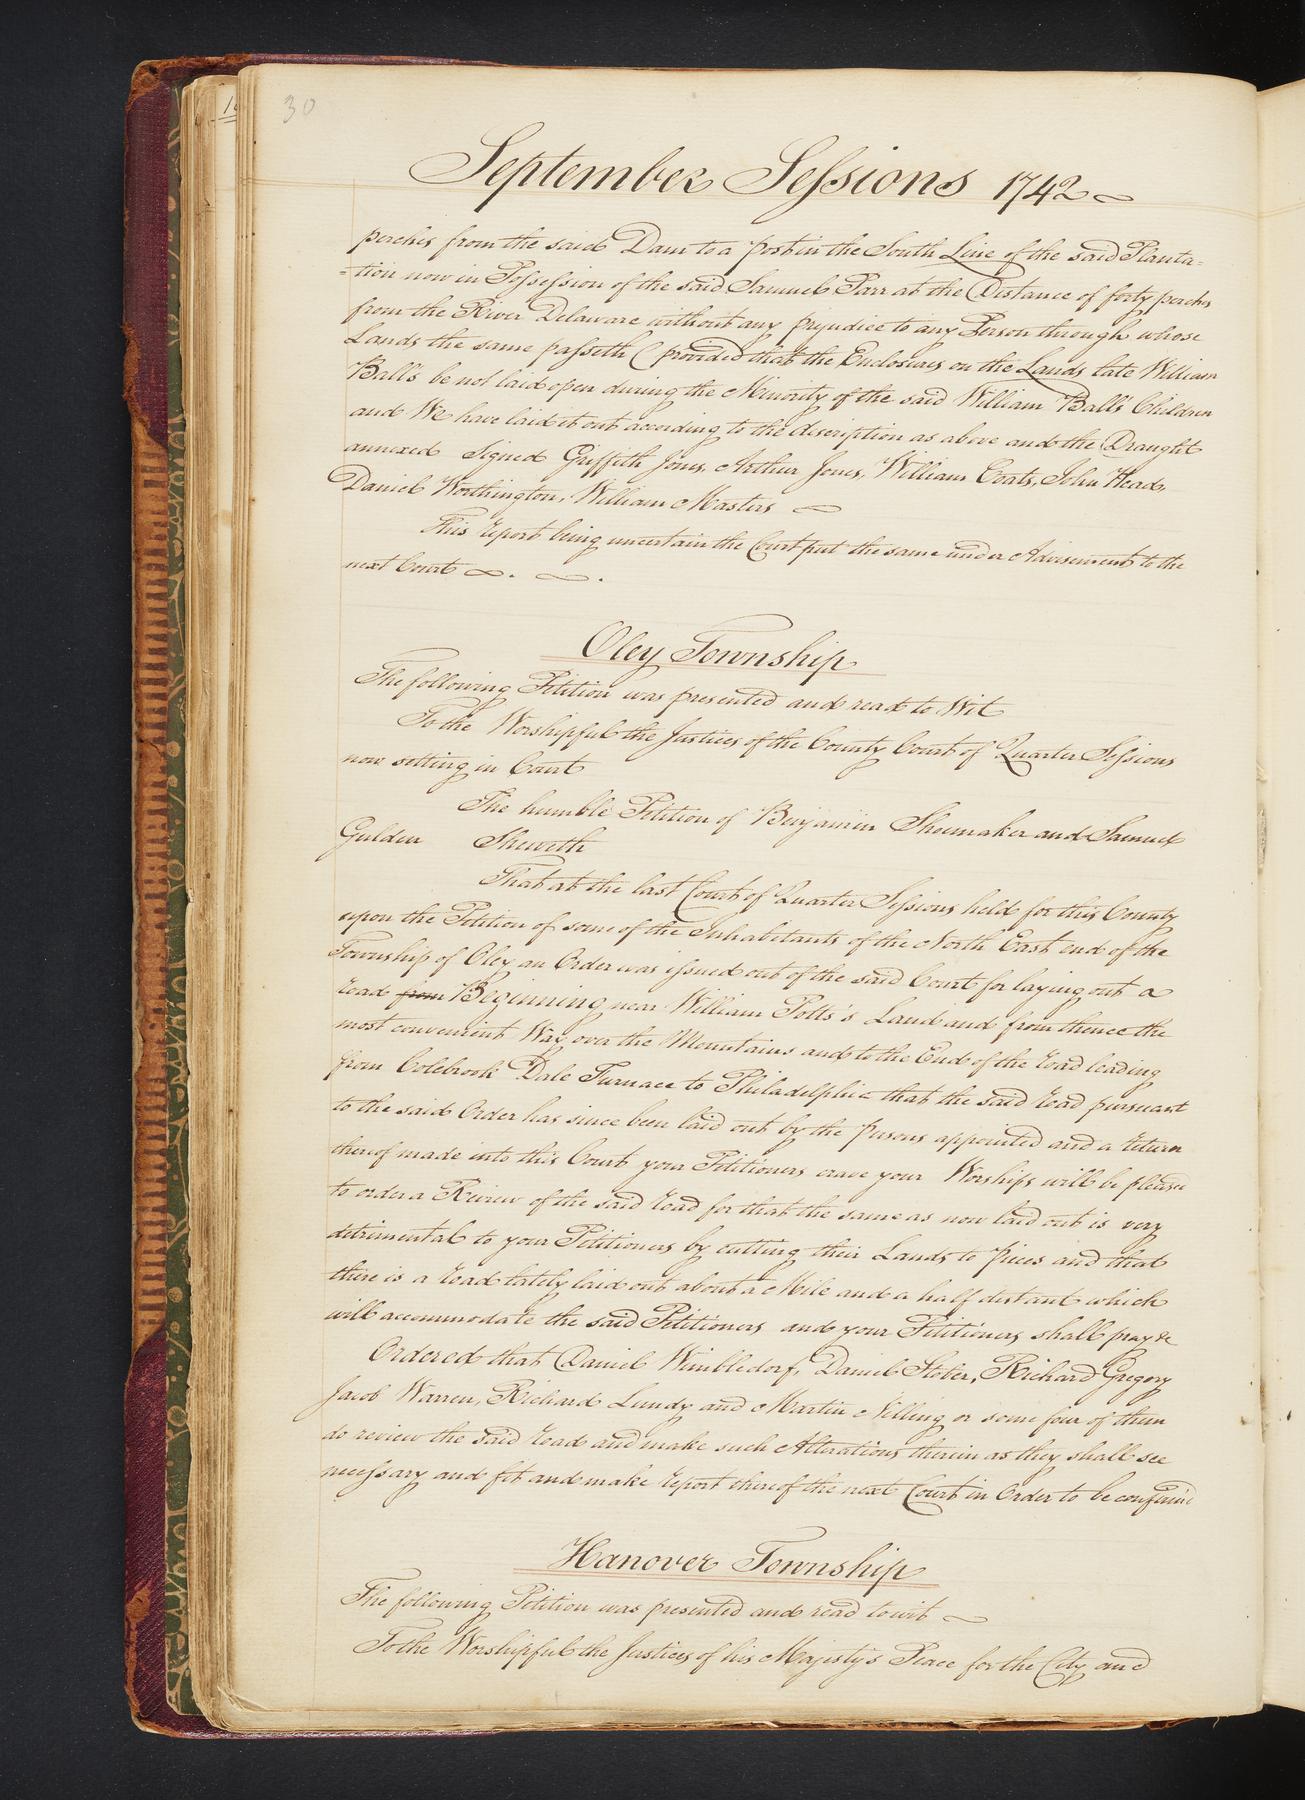 30
September Sessions 1742
perches from the said Dam to a post in the South Line of the said Planta=
=tion now in Possession of the said Samuel Parr at the Distance of forty perches
from the River Delaware without any prejudice to any Person through whose
Lands the same passeth (provided that the Enclosures on the Lands late William
Ball's be not laid open during the Minority of the said William Ball's Children
and We have laid it out according to the discription as above and the Draught
annexed Signed Griffith Jones, Arthur Jones, William Coats, John Head,
Daniel Worthington, William Masters
This report being uncertain the Court put the same under Advisement to the
next Court
Oley Township
The following Petition was presented and read to Wit
To the Worshipful the Justices of the County Court of Quarter Sessions
now setting in Court
The humble Petition of Benjamin Shoemaker and Samuel
Gulden Sheweth
That at the last Court of Quarter Sessions held for this County
upon the Petition of some of the Inhabitants of the North East end of the
Township of Oley an Order was issued out of the said Court for laying out a
road from Beginning near William Potts's Land and from thence the
most convenient Way over the Mountains and to the End of the road leading
from Colebrook Dale Furnace to Philadelphia that the said road pursuant
to the said Order has since been laid out by the persons appointed and a return
thereof made into this Court your Petitioners crave your Worships will be pleased
to order a Review of the said road for that the same as now laid out is very
detrimental to your Petitioners by cutting their Lands to pieces and that
there is a road lately laid out about a Mile and a half distant which
will accommodate the said Petitioners and your Petitioners shall pray &c
Ordered that Daniel Wimbledorf, Daniel Stober, Richard Gregory
Jacob Warren, Richard Lundy and Martin Nilling or some four of them
do review the said road and make such Alterations therein as they shall see
necessary and fit and make report thereof the next Court in Order to be confirm'd
Hanover Township
The following Petition was presented and read to wit
To the Worshipful the Justices of his Majesty's Peace for the City and